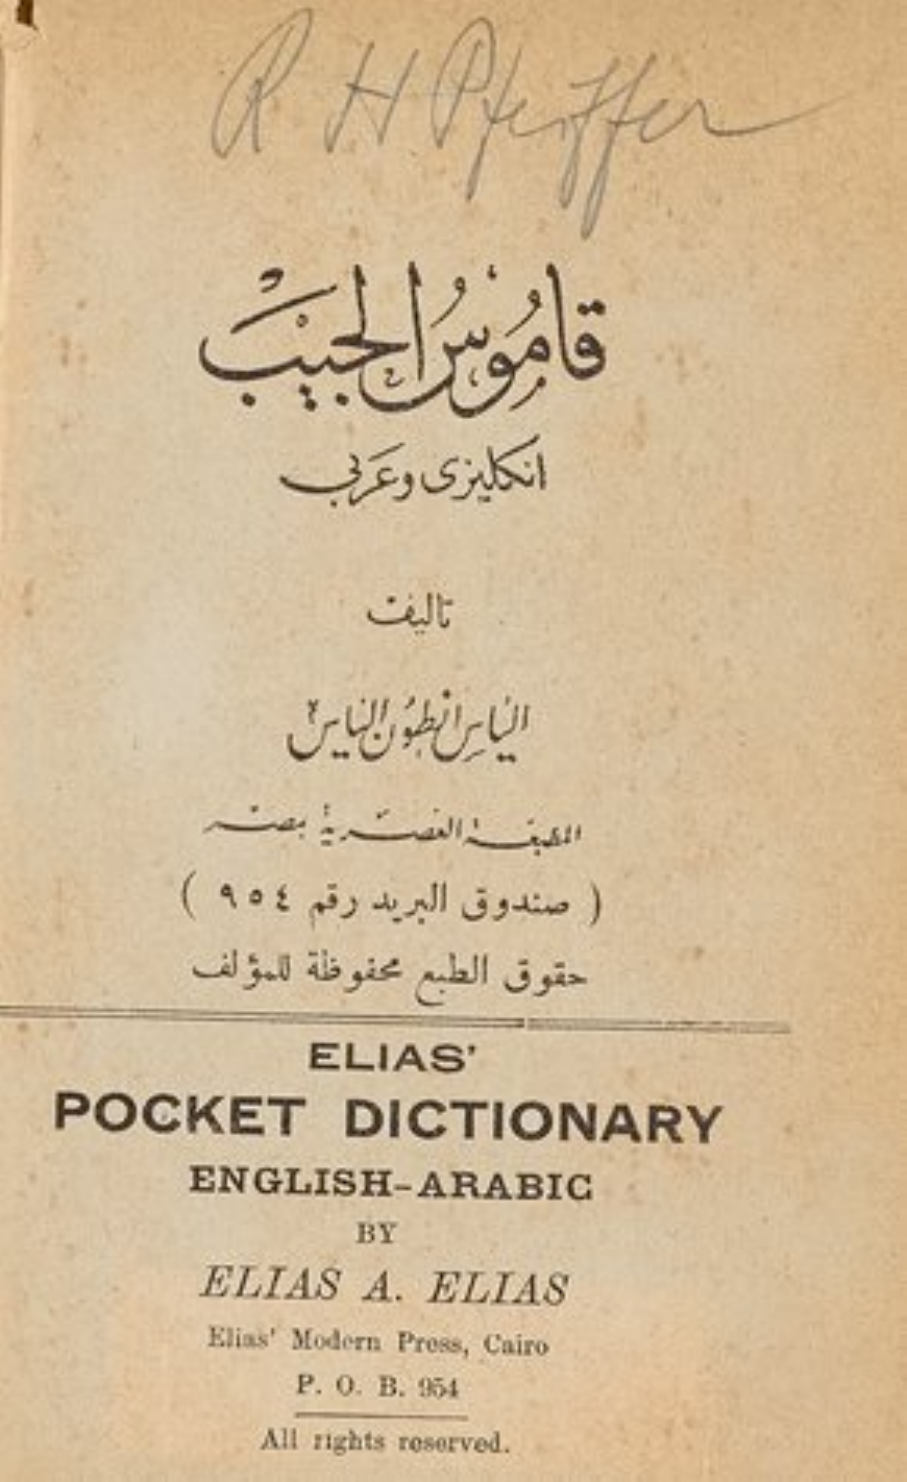 R H Pfeiffer
قَامُوْسُ الْجَيْبْ
انكليزى وعَربي
تاليف
الياس انطون الياس
المطبعة العصرية بمصر
( صندوق البريد رقم ٩٥٤ )
حقوق الطبع محفوظة للمؤلف
ELIAS'
POCKET DICTIONARY
ENGLISH-ARABIC
BY
ELIAS A. ELIAS
Elias' Modern Press, Cairo
P. O. B. 954
All rights reserved.